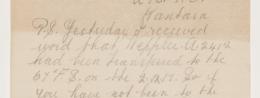 Fantain
P.S. Yesterday I received
word that Hepple A 2412
had been transferred to the
67 F.S. on the 2.12.17. So if
you have not been to the